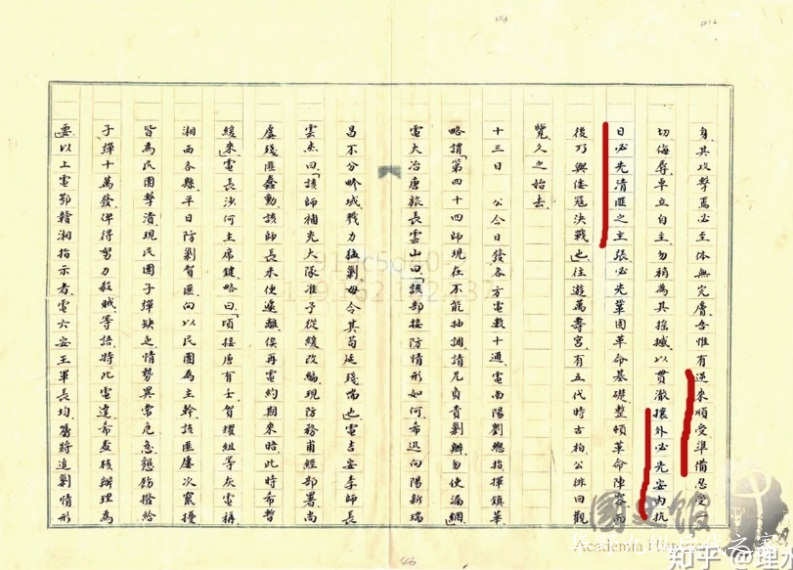 身其攻擊焉必至体無完膚吾惟有逆來順受準備忍受
切侮辱卓立自主勿稍為其搖撼以貫澈攘外必先安內抗
日必先清匪之主張必先鞏固革命基礎整頓革命陣容而
後乃與倭寇決戰也往遊萬壽宮有五代時古柏公徘徊觀
覽久之始去
十三日 公今日發各方電數十通電南陽劉總指揮鎮華
略謂「第四十四師現在不能抽調請兄負責剿辦勿使漏網」
電大冶唐旅長雲山曰「該部接防情形如何希迅向陽新瑞
昌不分畛域戮力猛剿毋令其苟延殘喘」也電吉安李師長
雲杰曰「該師補充大隊准予從緩改編現防務甫經部署尚
虞殘匪蠢動該師長未便遽離俟再電約期來晤此時希暫
緩來」電長沙何主席鍵略曰「頃接唐有壬賀耀組等灰電稱
湘西各縣平日防剿賀匪向以民團為主幹該匪屢次竄擾
皆為民團擊潰現民團子彈缺乏情勢異常危急懇飭撥給
子彈十萬發俾得努力殺賊等語特此電達希查核辦理為
要」以上電鄂贛湘指示者電六安王軍長均舊將追剿情形
46
國史館
Academia Historica
知乎 @理